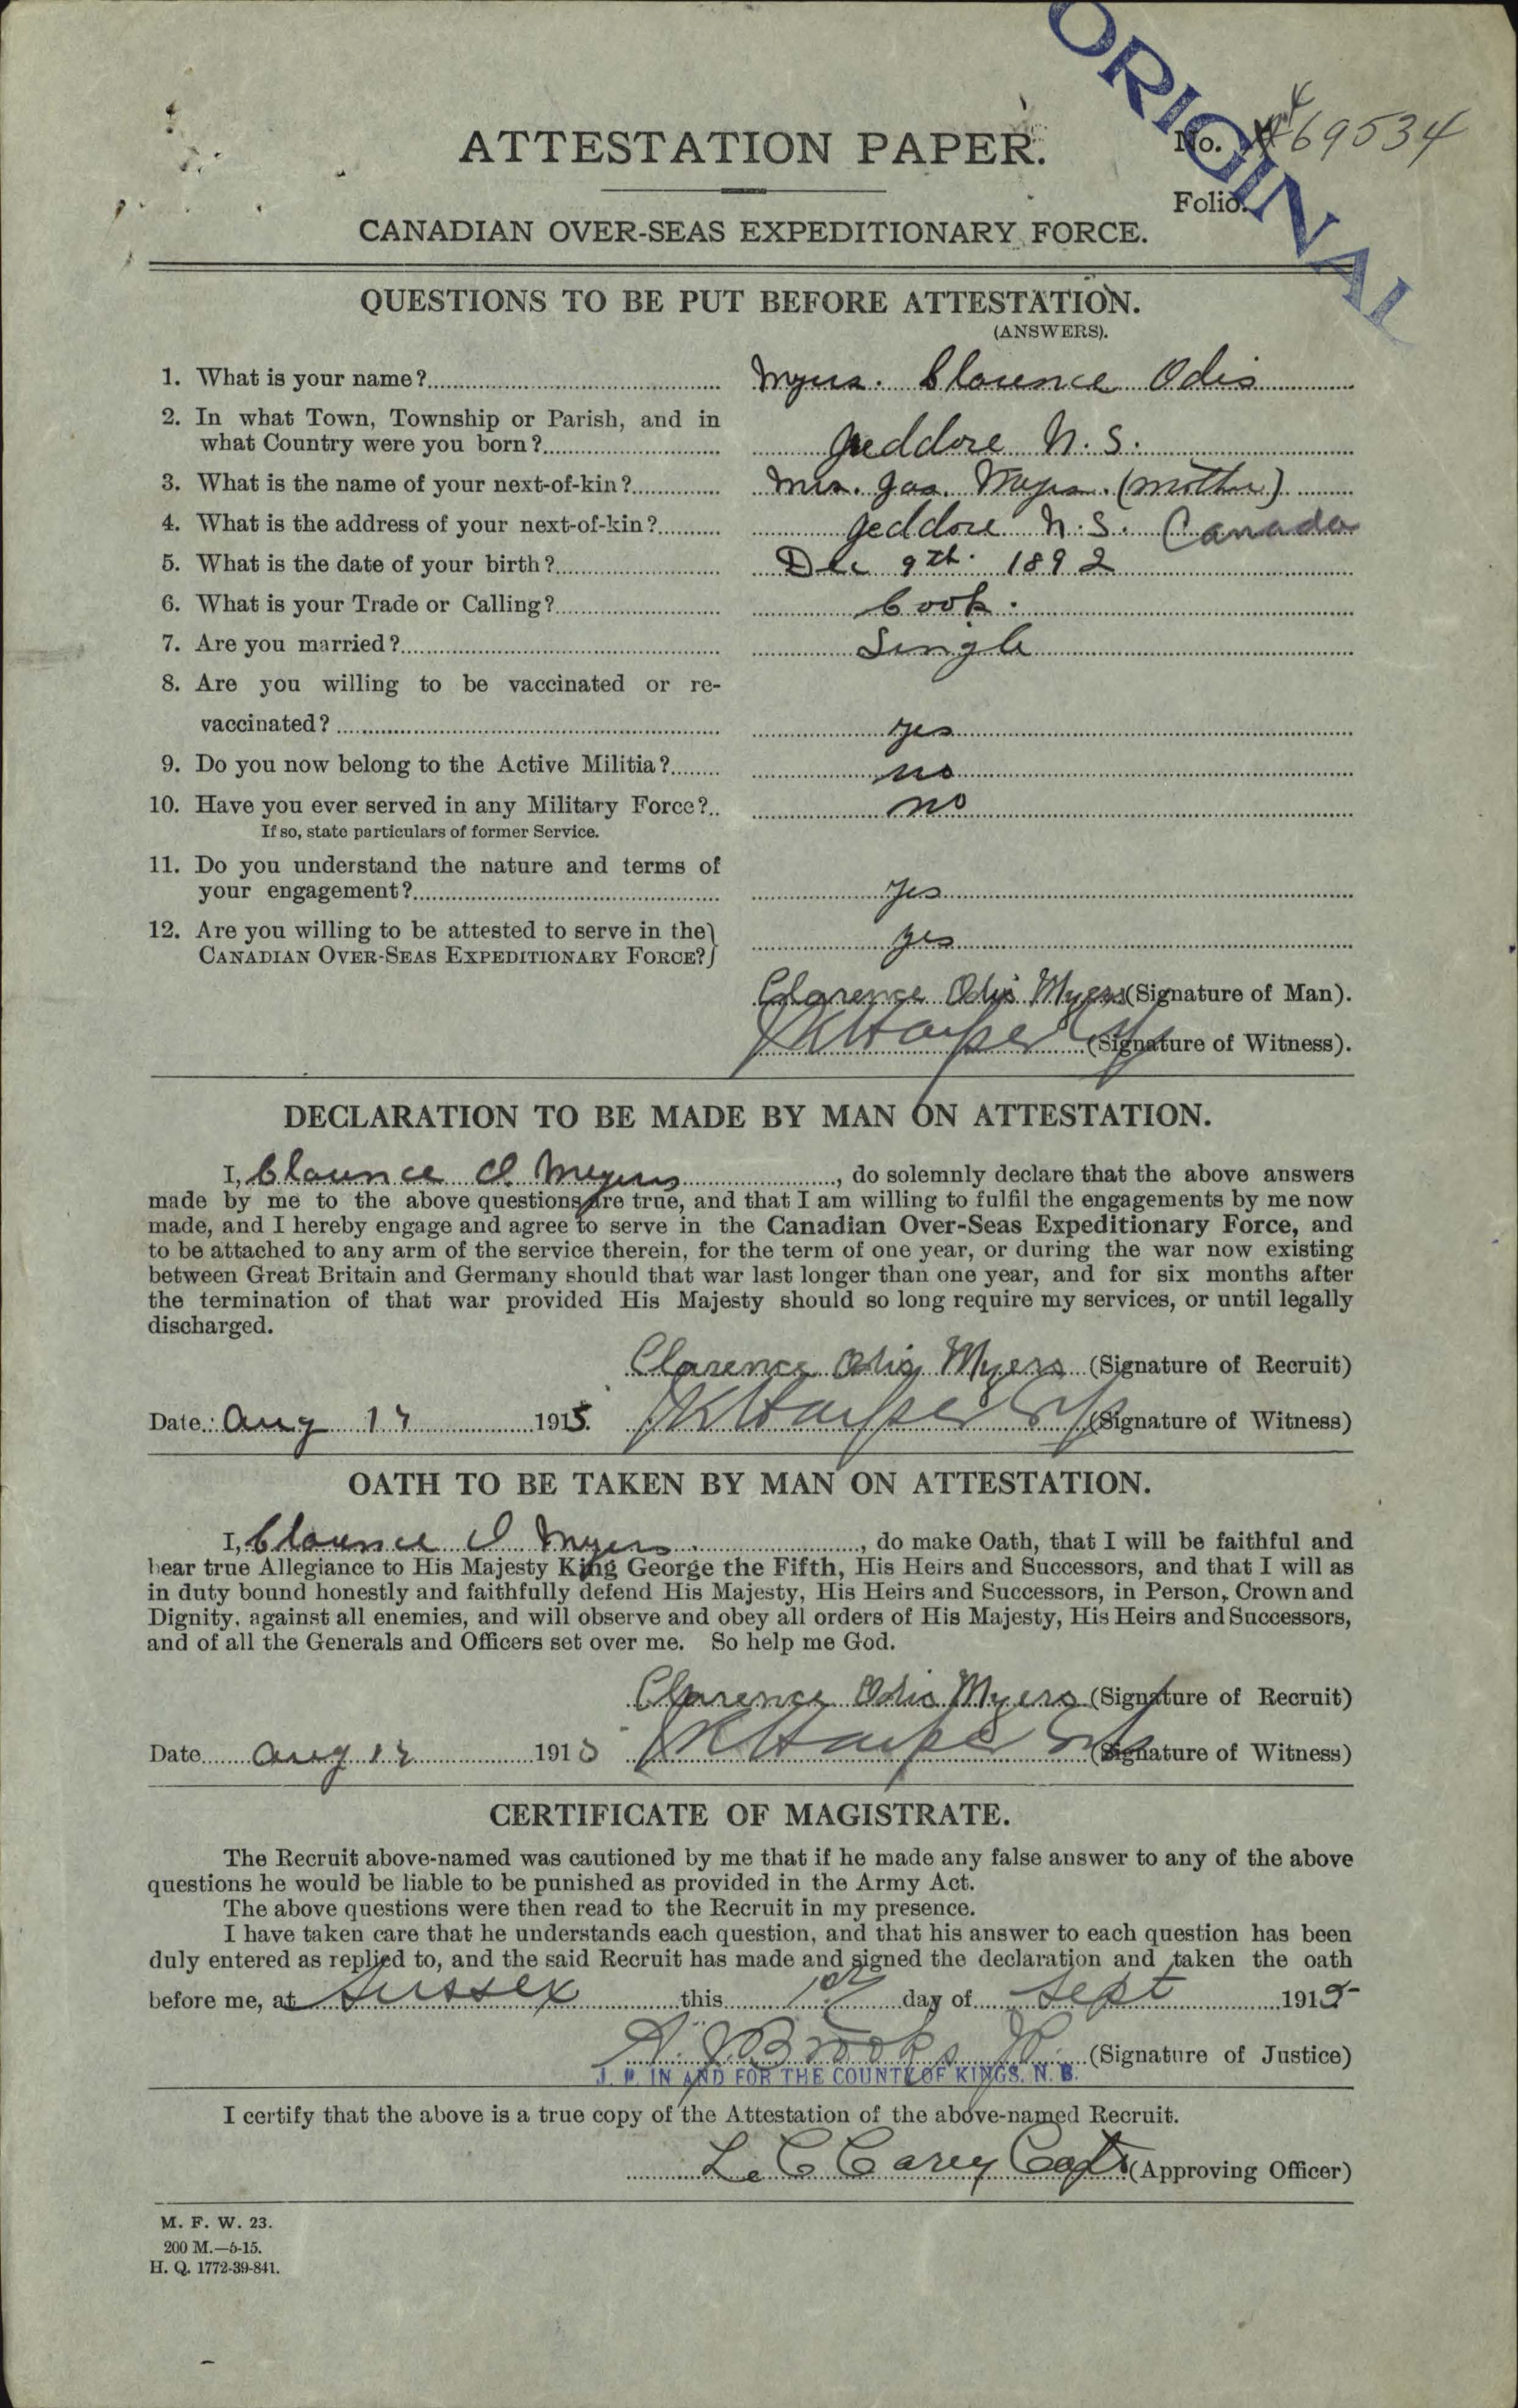 ORIGINAL
ATTESTATION PAPER.
No. 469534
Folio.
CANADIAN OVER-SEAS EXPEDITIONARY FORCE.
QUESTIONS TO BE PUT BEFORE ATTESTATION.
(ANSWERS).
1. What is your name? Myers. Clarence Odis
2. In what Town, Township or Parish, and in
what Country were you born? Jeddore N.S.
3. What is the name of your next-of-kin? Mrs. Jas. Myers. (mother)
4. What is the address of your next-of-kin? Jeddore N.S. Canada
5. What is the date of your birth? Dec 9th. 1892
6. What is your Trade or Calling? Cook.
7. Are you married? Single
8. Are you willing to be vaccinated or re-
vaccinated? yes
9. Do you now belong to the Active Militia? no
10. Have you ever served in any Military Force?.. no
If so, state particulars of former Service.
11. Do you understand the nature and terms of
your engagement? yes
12. Are you willing to be attested to serve in the
CANADIAN OVER-SEAS EXPEDITIONARY FORCE? yes
Clarence Odis Myers (Signature of Man).
Harper (Signature of Witness).
DECLARATION TO BE MADE BY MAN ON ATTESTATION.
I, Clarence O. Meyers, do solemnly declare that the above answers
made by me to the above questions are true, and that I am willing to fulfil the engagements by me now
made, and I hereby engage and agree to serve in the Canadian Over-Seas Expeditionary Force, and
to be attached to any arm of the service therein, for the term of one year, or during the war now existing
between Great Britain and Germany should that war last longer than one year, and for six months after
the termination of that war provided His Majesty should so long require my services, or until legally
discharged.
Clarence Odis Myers (Signature of Recruit)
Date: Aug 1915. Harper (Signature of Witness)
OATH TO BE TAKEN BY MAN ON ATTESTATION.
I, Clarence O Myers., do make Oath, that I will be faithful and
bear true Allegiance to His Majesty King George the Fifth, His Heirs and Successors, and that I will as
in duty bound honestly and faithfully defend His Majesty, His Heirs and Successors, in Person, Crown and
Dignity, against all enemies, and will observe and obey all orders of His Majesty, His Heirs and Successors,
and of all the Generals and Officers set over me. So help me God.
Clarence Odis Myers (Signature of Recruit)
Date Aug 1915 Harper (Signature of Witness)
CERTIFICATE OF MAGISTRATE.
The Recruit above-named was cautioned by me that if he made any false answer to any of the above
questions he would be liable to be punished as provided in the Army Act.
The above questions were then read to the Recruit in my presence.
I have taken care that he understands each question, and that his answer to each question has been
duly entered as replied to, and the said Recruit has made and signed the declaration and taken the oath
before me, at Sussex this 1st day of Sept 1915
A. J. Brooks JP. (Signature of Justice)
J. P. IN AND FOR THE COUNTY OF KINGS. N. B.
I certify that the above is a true copy of the Attestation of the above-named Recruit.
L. C Carey Capt (Approving Officer)
M. F. W. 23.
200 M.—6-15.
H. Q. 1772-39-841.